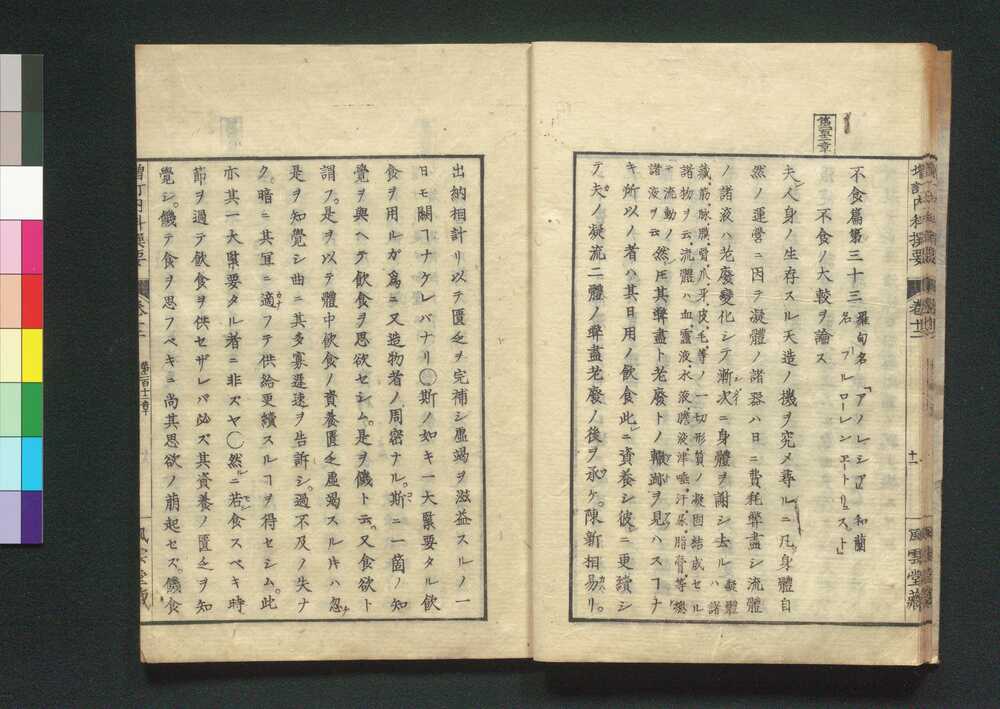 舊第百二章
不食篇第三十三 羅甸名「アノレシア」和蘭名「ブルローレンエートリュスト」
不食ノ大較ヲ論ス
夫人身ノ生存スル天造ノ機ヲ究メ尋ルニ凡身體自
然ノ運營ニ因テ凝體ノ諸器ハ日ニ費耗弊盡シ流體
ノ諸液ハ老廢變化シテ漸次ニ身體ヲ謝シ去ル 凝體ハ諸
藏筋脉膜骨爪牙皮毛等ノ一切形質ノ凝固結成セル
諸物ヲ云流體ハ血靈液水液膽液津唾汗尿脂膏等總
テ流動ノ諸液ヲ云 然𪜈其弊盡ト老廢トノ轍跡ヲ見ハスヿナ
キ所以ノ者ハ其日用ノ飲食此ニ資養シ彼ニ更續シ
テ夫ノ凝流二體ノ弊盡老廢ノ後ヲ承ケ陳新相易リ
出納相計リ以テ匱乏ヲ完補シ虛竭ヲ滋益スルノ一
日モ闕ヿナケレバナリ○斯ノ如キ一大緊要タル飲
食ヲ用ルガ爲ニ又造物者ノ周密ナル斯ニ一箇ノ知
覺ヲ與ヘテ飲食ヲ思欲セシム是ヲ饑ト云又食欲ト
謂フ是ヲ以テ體中飲食ノ資養匱乏虛竭スル𪜈ハ忽
是ヲ知覺シ曲ニ其多寡遲速ヲ告訴シ過不及ノ失ナ
ク暗ニ其冝ニ適フテ供給更續スルヿヲ得セシム此
亦其一大緊要タル者ニ非スヤ○然ニ若食スベキ時
節ヲ過テ飲食ヲ供セザレバ必ズ其資養ノ匱乏ヲ知
覺シ饑テ食ヲ思フベキニ尚其思欲ノ萠起セズ饑食
増訂内科撰要
卷十二
十一
風雲堂藏
第二百十二章